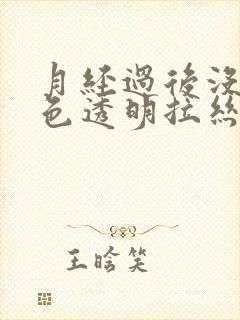 月經過後沒
色透明拉絲
王晗笑